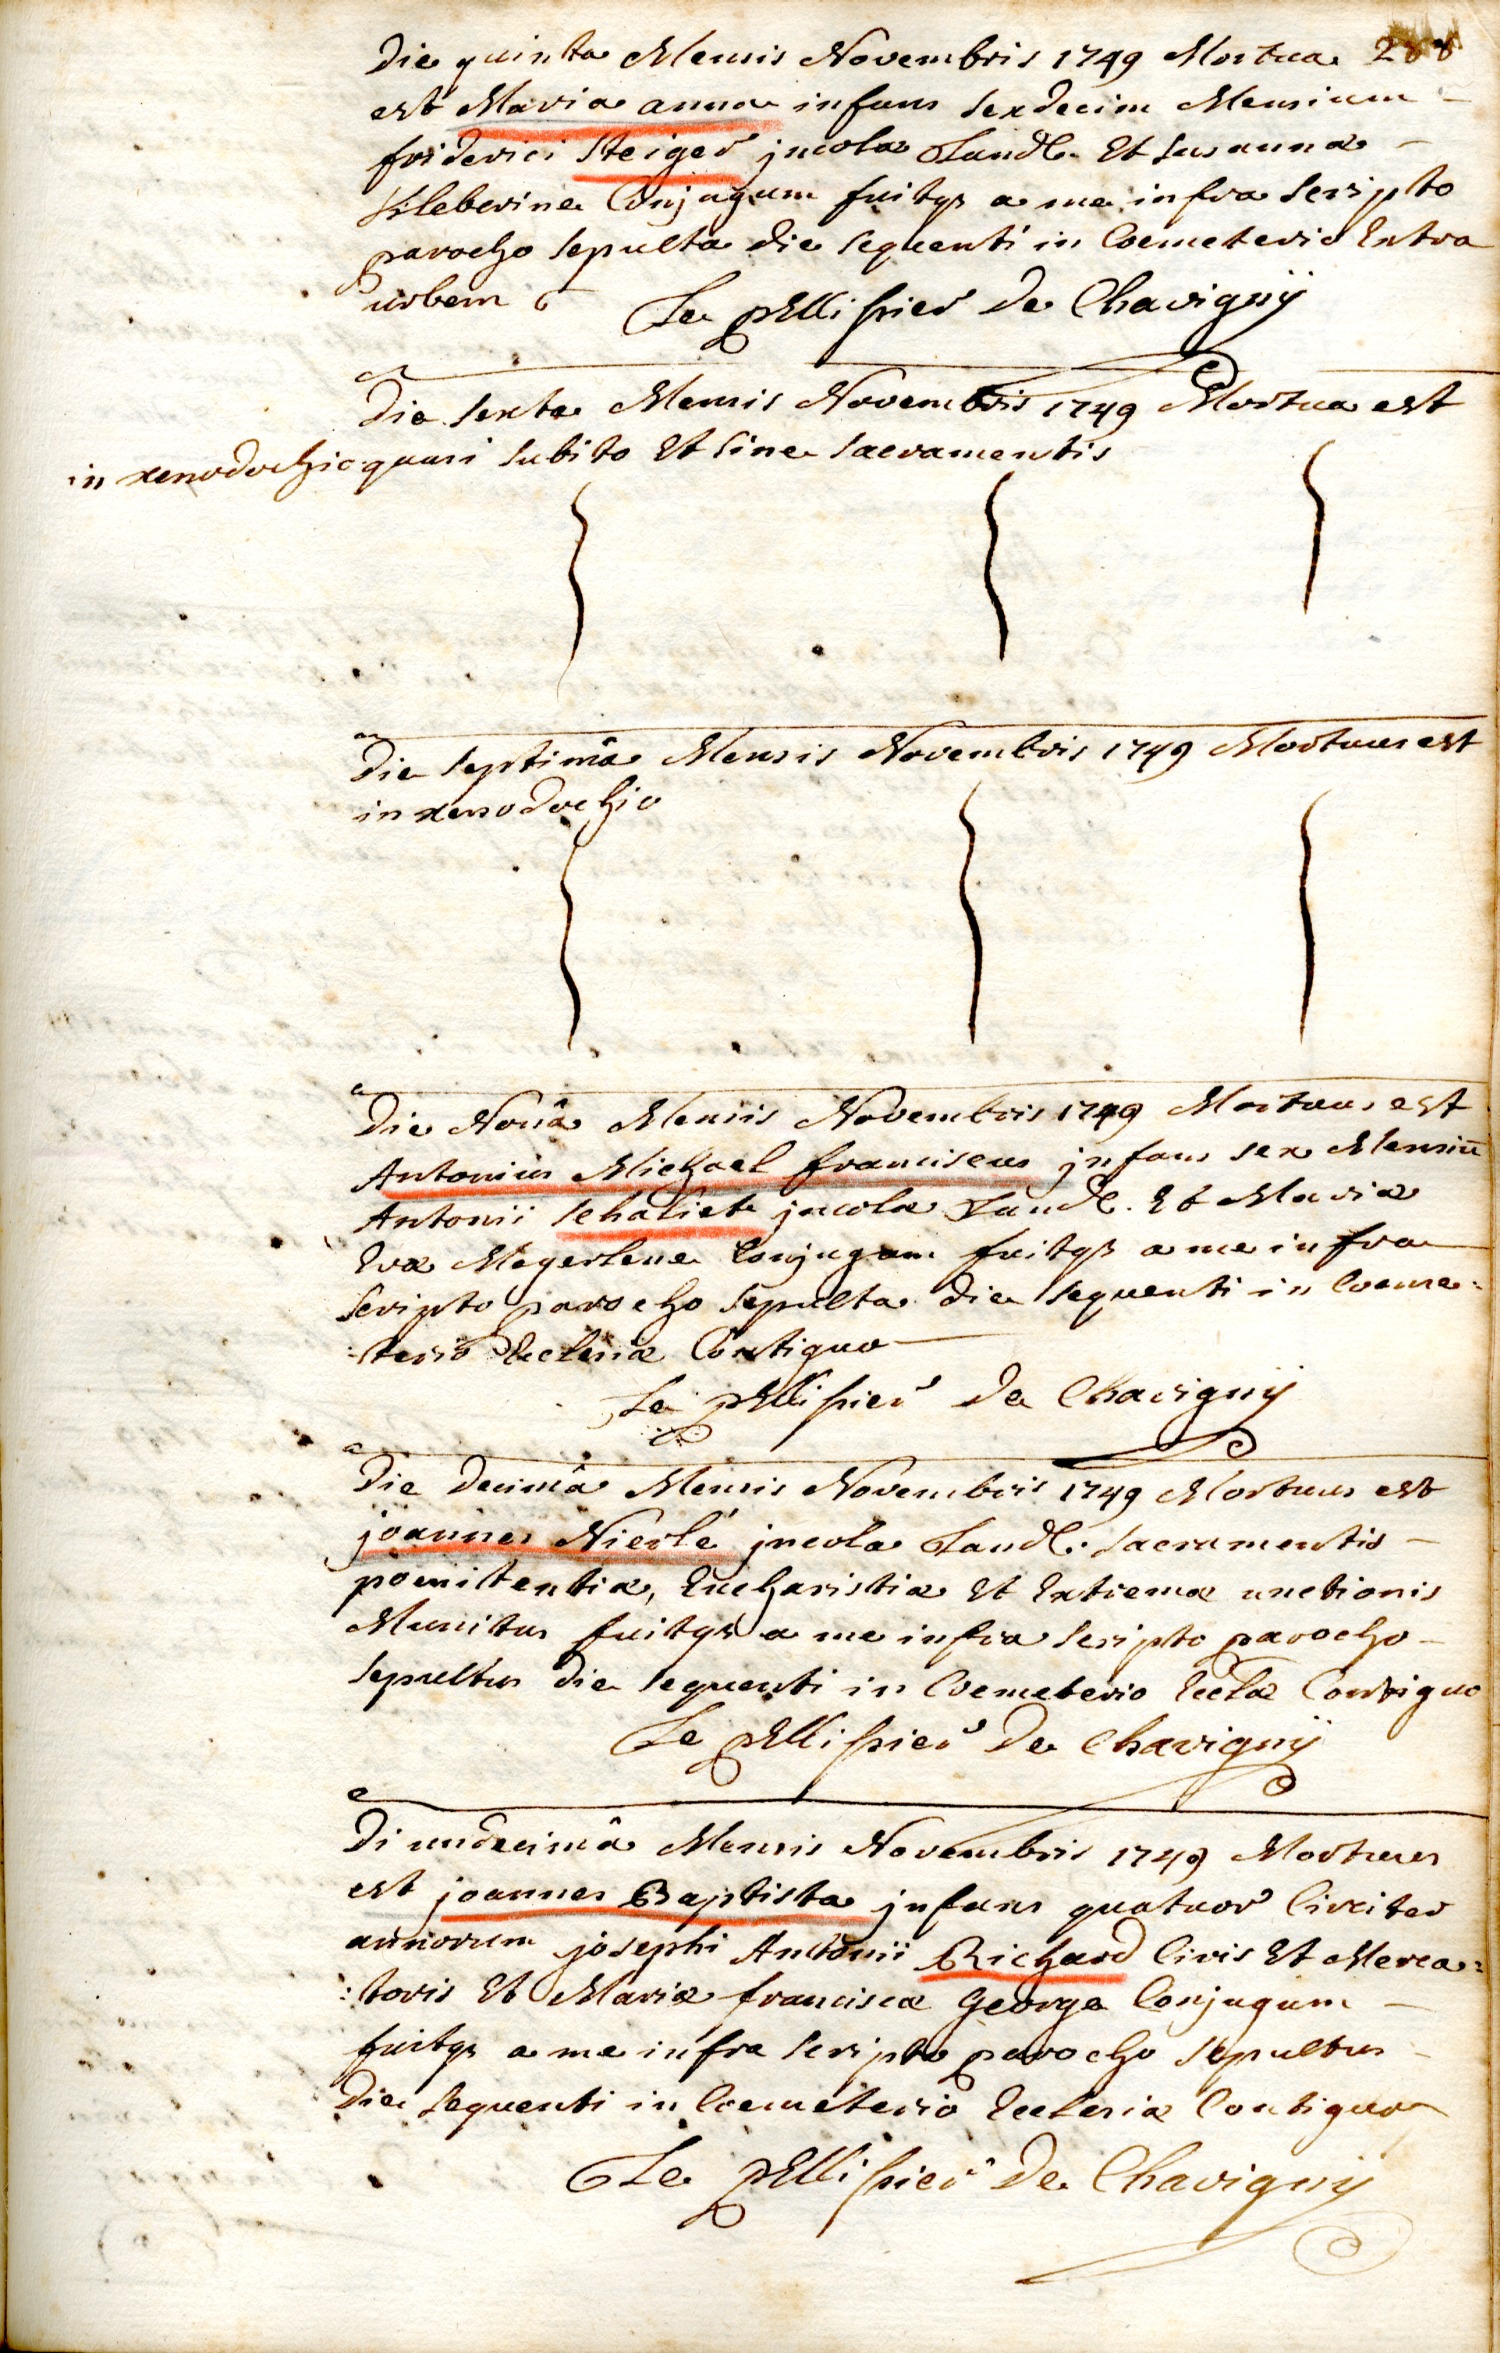 288
Die quinta Mensis Novembris 1749 Mortua
est Maria anna infans sexdecim Mensium
friderici Steiger jncola Land. Et Susanna
Kleberine Conjugum fuitq3 a me infra scripto
parocho sepulta die sequenti in Coemeterio Extra
urbem
Le pellissier De Chavignÿ
Die Sexta Mensis Novembris 1749 Mortua est
in xenodochio quasi subito Et sine sacramentis
Die septimâ Mensis Novembris 1749 Mortuus est
in xenodochio
Die Nonâ Mensis Novembris 1749 Mortuus est
Antonius Michael franciscus jnfans sex Mensiū
Antonii jncola Land. Et Maria
Eva Megerlene Conjugam fuitq3 a me infra
scripto parocho sepulta die sequenti in Coeme:
:terio Ecclesiæ Contiguo
Le pellissier De Chavignÿ
Die Decimâ Mensis Novembris 1749 Mortuus est
joannes jncola Land. sacramentis
poenitentiæ, Eucharistiæ Et Extremæ unctionis
Munitus fuitq3 a me infra scripto parocho
sepultus die sequenti in Coemeterio Eccla Contiguo
Le pellissier De Chavignÿ
Di undecimâ Mensis Novembris 1749 Mortuus
est joannes Baptista jnfans quatuor Circiter
annorum josephi Antonii Richard Civis Et Merca:
:toris Et Mariæ franciscæ George Conjugum
fuitq3 a me infra scripto parocho sepultus
Die sequenti in Coemeterio Ecclesiæ Contiguo
Le pellissier De Chavignÿ